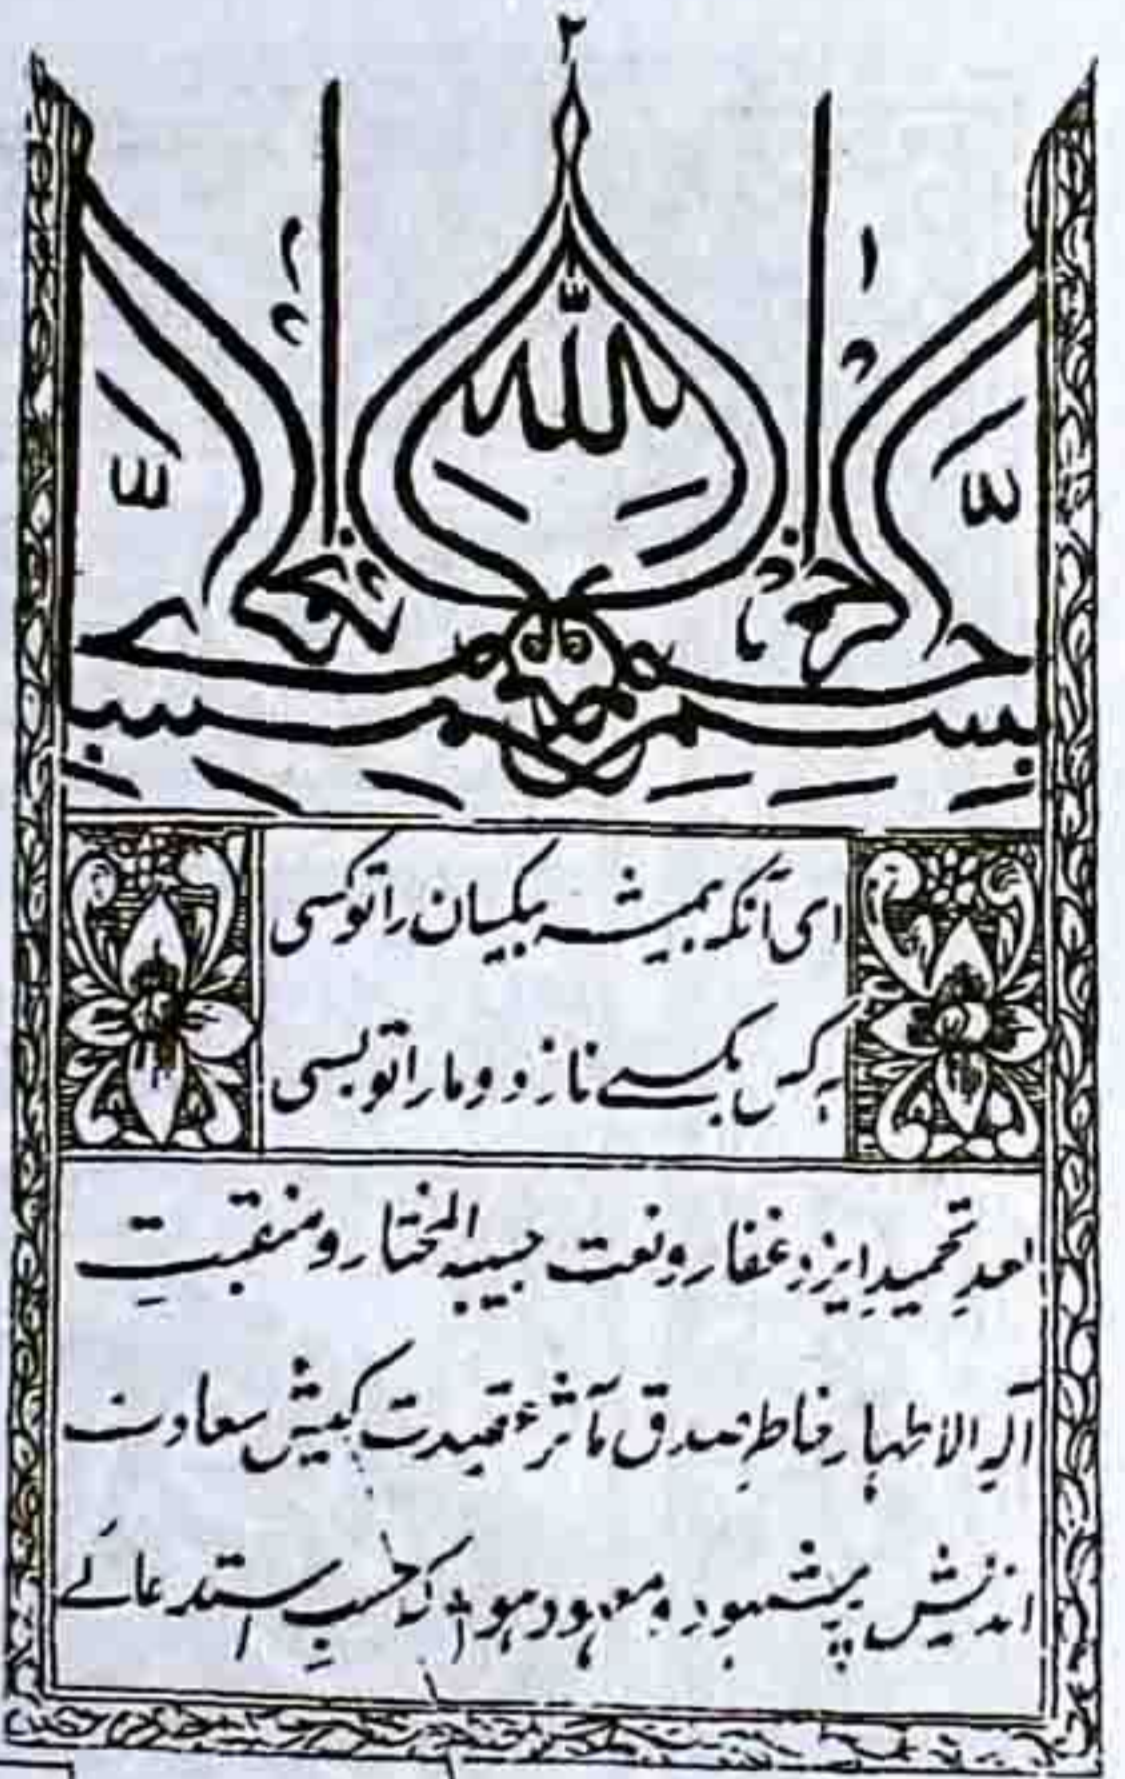 ۲
بسم الله الرحمن الرحيم
ای آنکه ہمیشہ بیکسیان را تو کسی
ہر کس بکسے نازد و ما را تو بسی
بعدِ تحمیدِ ایزدِ غفار و نعت حبیبہ المختار و منقبتِ
آلہ الاطہار خاطرِ صدق مآثر عقیدت کیش سعادت
اندیش پر مشہود و معہود ہو کہ حسبِ استدعائے